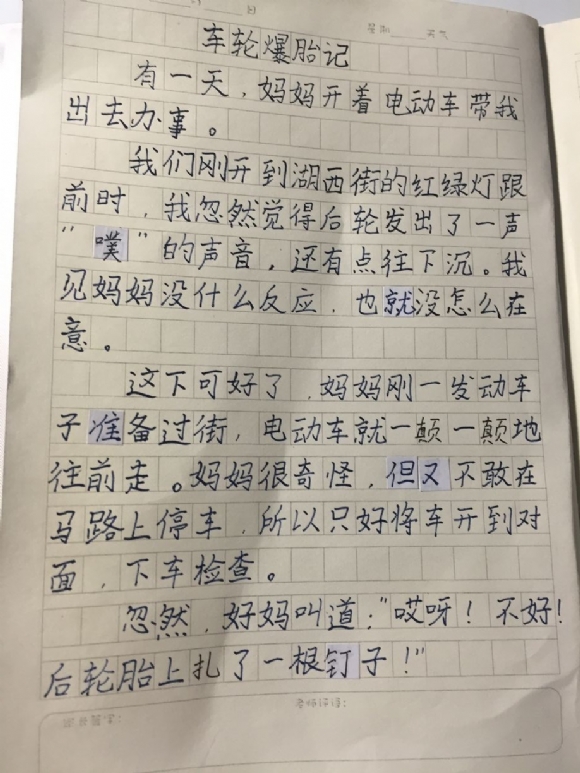 日
星期 天气
车轮爆胎记
有一天，妈妈开着电动车带我
出去办事。
我们刚开到湖西街的红绿灯跟
前时，我忽然觉得后轮发出了一声
“噗”的声音，还有点往下沉。我
见妈妈没什么反应，也就没怎么在
意。
这下可好了，妈妈刚一发动车
子准备过街，电动车就一颠一颠地
往前走。妈妈很奇怪，但又不敢在
马路上停车，所以只好将车开到对
面，下车检查。
忽然，好妈叫道：“哎呀！不好！
后轮胎上扎了一根钉子！”
老师评语：